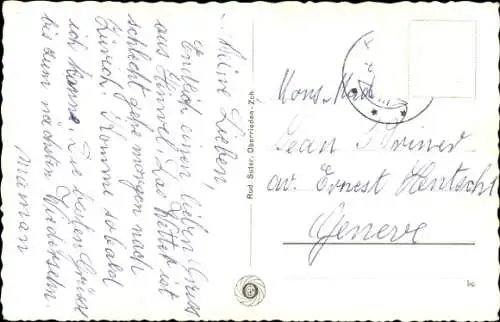 Meine Lieben,
Endlich einen lieben Gruss
aus Hinwel. Das Wetter ist
schlecht gehe morgen nach
Zürich. Komme sobald
ich kann. Die besten Grüsse
bis zum nächsten Wiedersehn.
Maman
Rud. Suter, Oberrieden-Zch.
Mons. Mad.
Jean
av. Ernest Hentsch
Genève